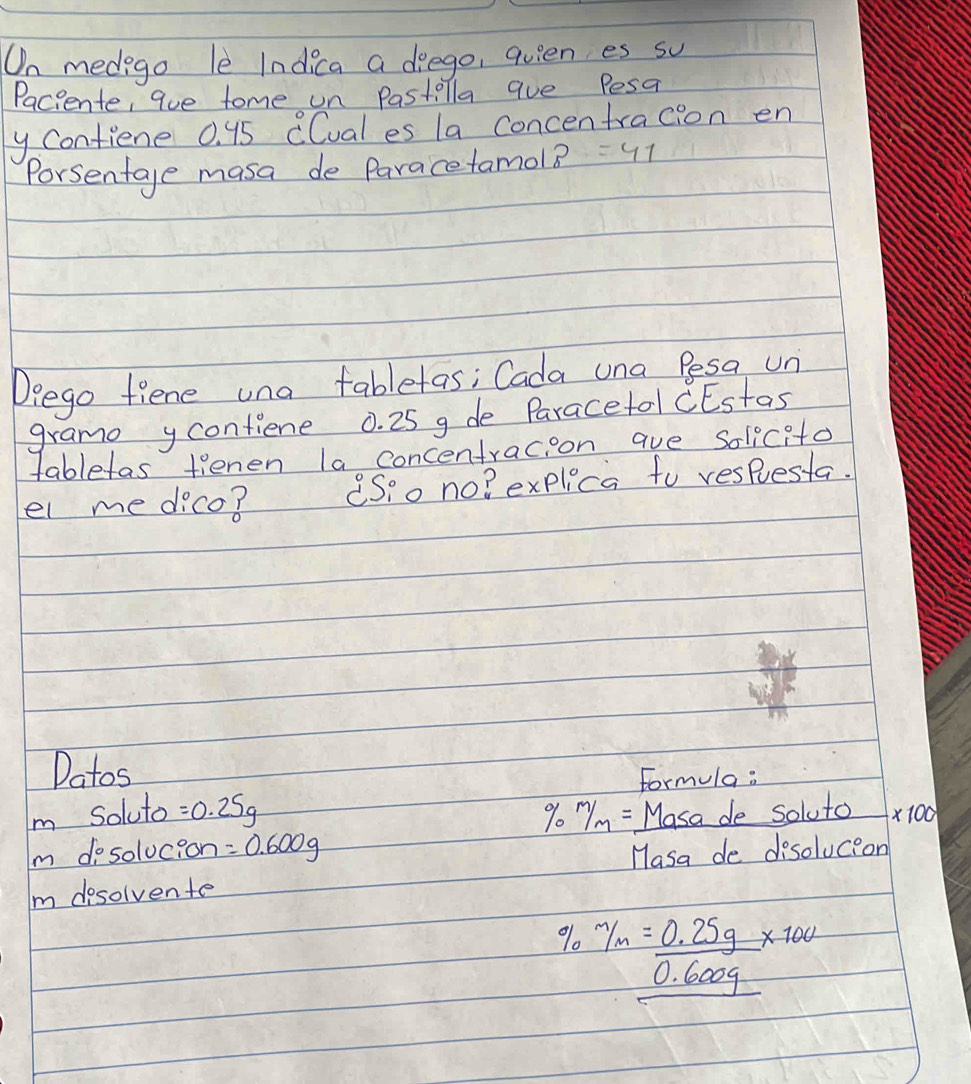 Un medigo le Indica a diego, quien es su
Paciente, que tome un Pastilla que Pesa
y contiene 0.45 ¿Cual es la concentracion en
Porsentaje masa de Paracetamol? = 41
Diego tiene una tabletas; Cada una Pesa un
gramo y contiene 0.25 g de Paracetol ¿Estas
tabletas tienen la concentracion que Solicito
el medico? ¿Si o no? explica tu respuesta.
Datos
Formula:
m Soluto = 0.25g
% m/m = Masa de soluto x 100
m disolucion = 0.600g
Masa de disolucion
m disolvente
% m/m = 0.25g x 100
0.600g